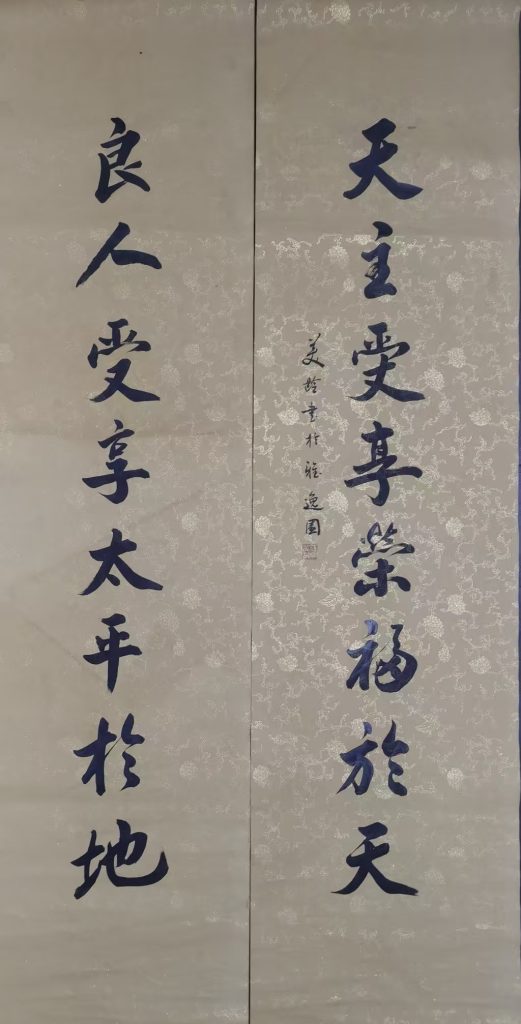 天主受享榮福於天
美龄書於雅逸園
良人受享太平於地